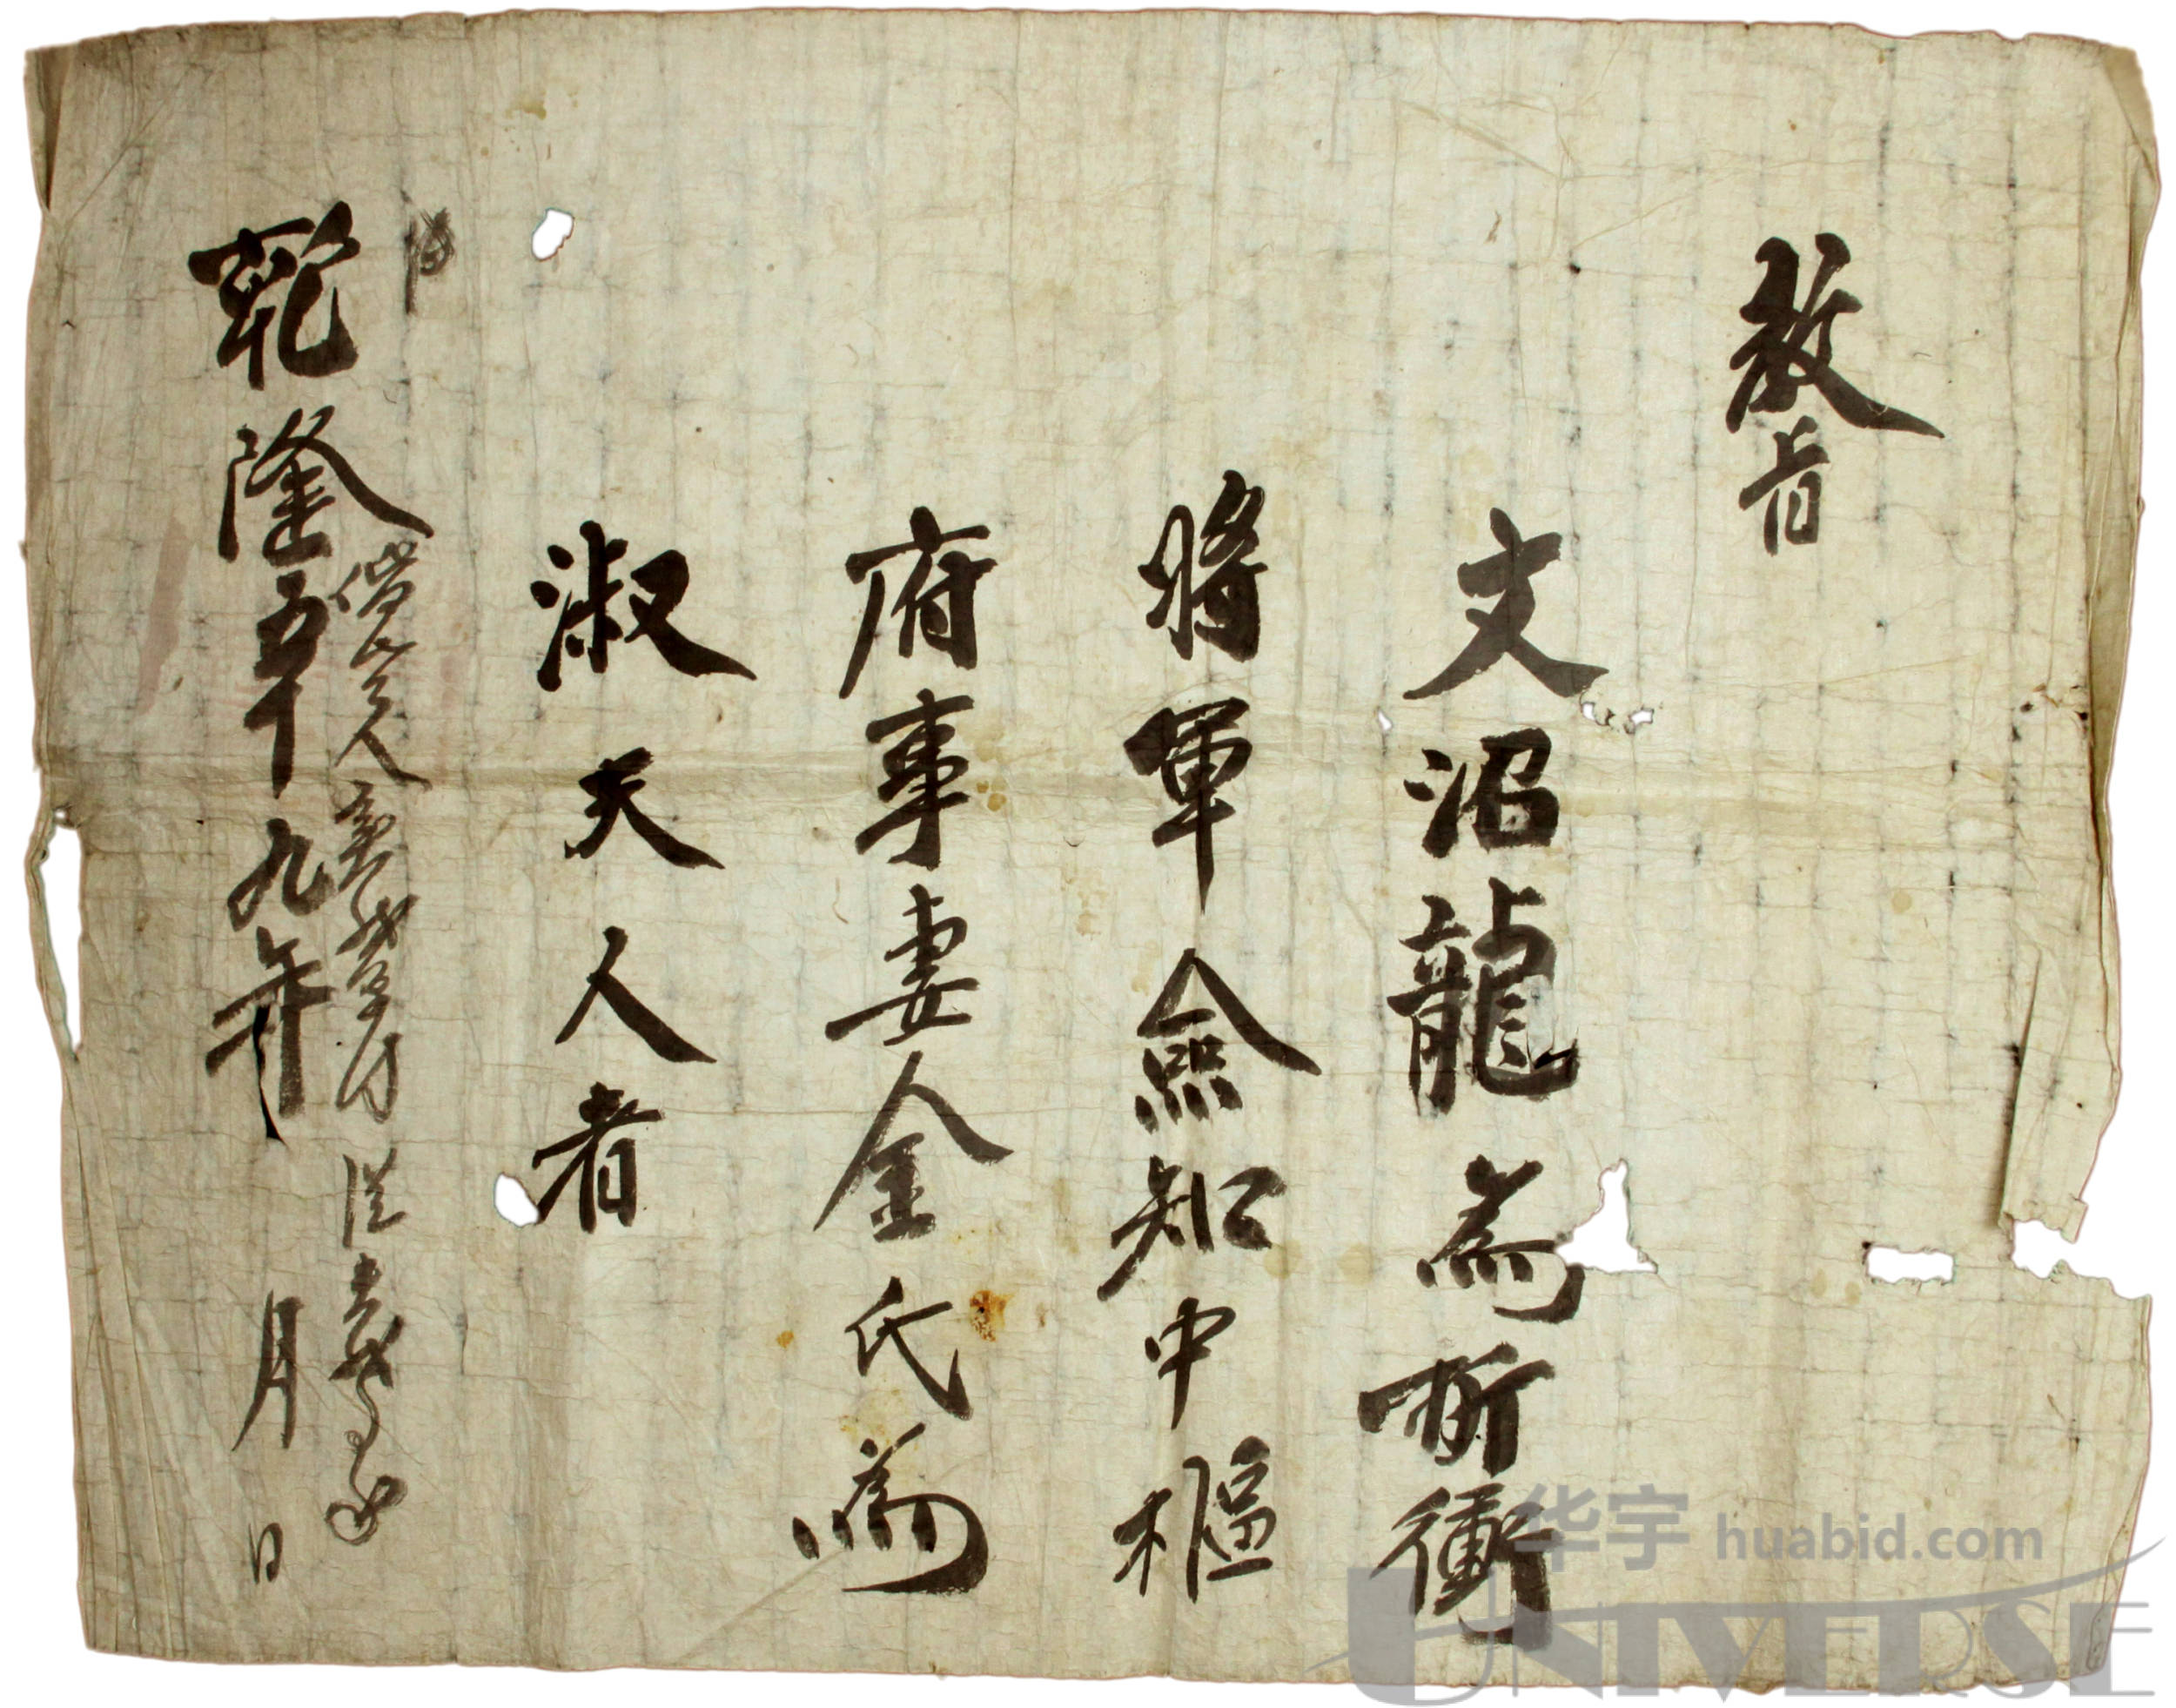 教旨
文沼龍為折衝
將軍僉知中樞
府事妻金氏為
淑夫人者
乾隆五十九年 月 日
华宇 huabid.com
UNIVERSE